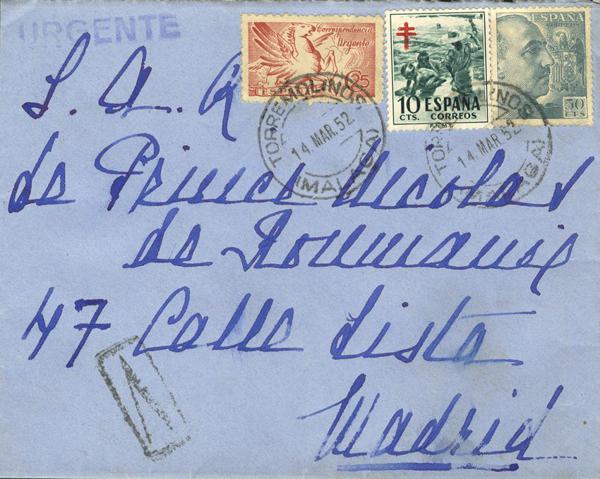 URGENTE
Correspondencia
Urgente
25
10 ESPAÑA
CTS. CORREOS
ESPAÑA
50
CTS
TORREMOLINOS
14. MAR. 52
(MALAGA)
TORREMOLINOS
14. MAR. 52
S. A. R
de Prince Nicolas
de Roumanie
47 Calle Lista
Madrid